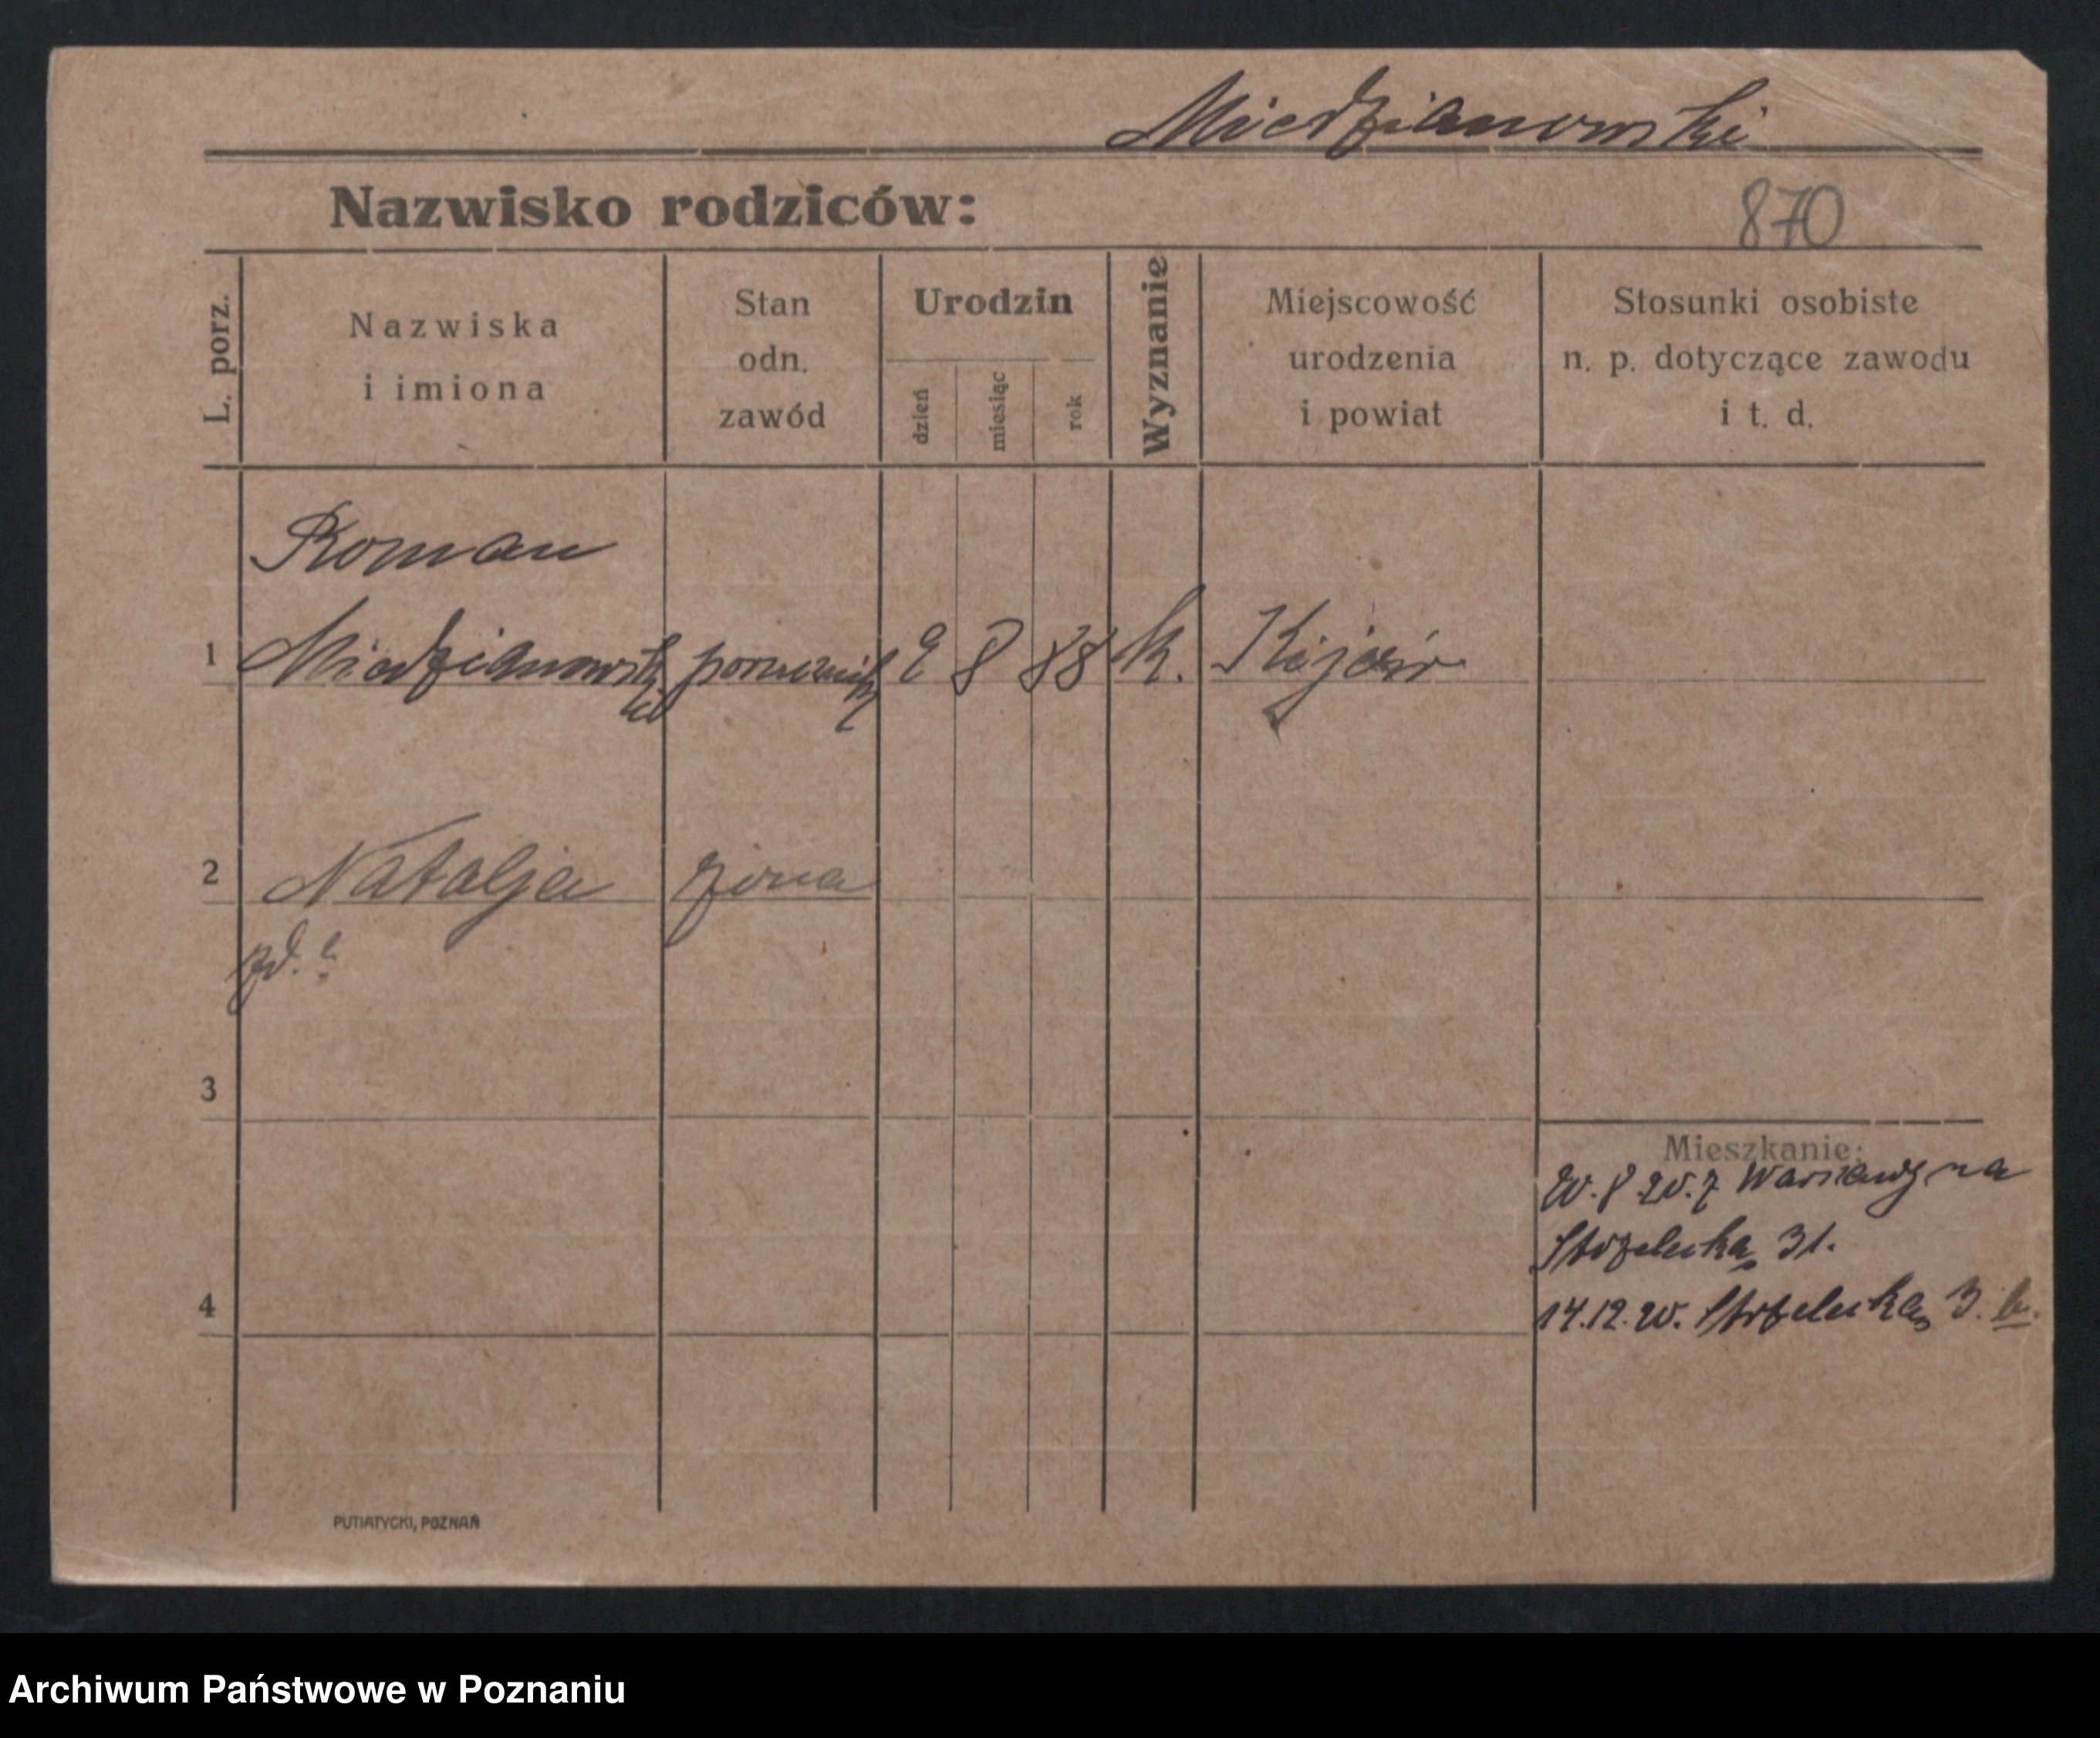 Miedzianowski
Nazwisko rodziców:
870
L. porz.
Nazwiska
i imiona
Stan
odn.
zawód
Urodzin
dzień
miesiąc
rok
Wyznanie
Miejscowość
urodzenia
i powiat
Stosunki osobiste
n. p. dotyczące zawodu
i t. d.
Roman
1 Miedzianowski porucznik 9 8 88 k. Kijów
2 Natalja żona
3
Mieszkanie:
Warszawy na
Strzelecka 31.
4
14.12.20. Strzelecka 3.
PUTIATYCKI, POZNAŃ
Archiwum Państwowe w Poznaniu